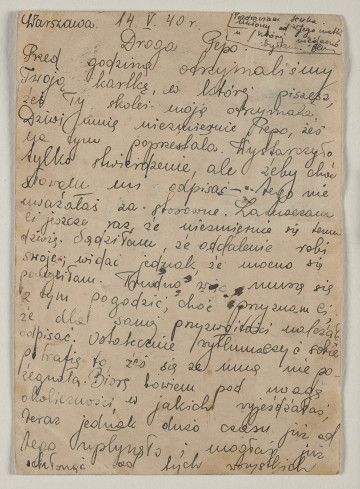 Warszawa. 14.V.40 r.
Droga Pepo.
Przed godziną otrzymaliśmy
Twoją kartkę, w której piszesz,
żeś Ty skolei moją otrzymała.
Dziwi mnie niezmiernie Pepo, żeś
na tym poprzestała. Wystarczyło
tylko stwierdzenie, ale żeby choć
słowem mi odpisać - tego nie
uważałaś za stosowne. Zaznaczam
Ci jeszcze raz, że niezmiernie się temu
dziwię. Sądziłam, że oddalenie robi
swoje, widać jednak, że mocno się
pomyliłam. Trudno, więc muszę się
z tym pogodzić, choć przyznam Ci,
że dla samej przyzwoitości należało
odpisać. Ostatecznie wytłumaczyć sobie
potrafię to, żeś się ze mną nie po-
żegnała. Biorę bowiem pod uwagę
okoliczności w jakich wyjeżdżałaś,
teraz jednak dużo czasu już od
tego upłynęło i mogłaś już
ochłonąć od tych wszystkich